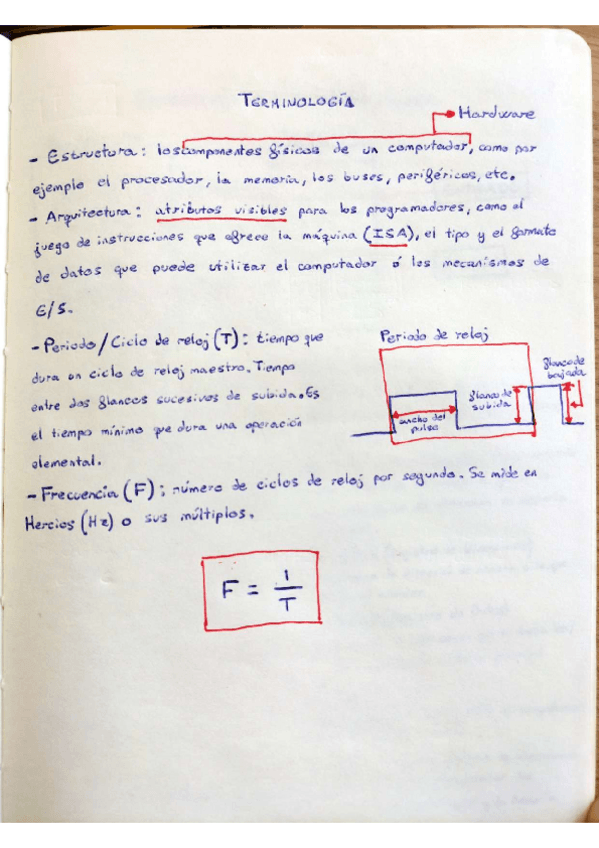 TERMINOLOGÍA
Hardware
- Estructura: los componentes físicos de un computador, como por
ejemplo el procesador, la memoria, los buses, periféricos, etc.
- Arquitectura: atributos visibles para los programadores, como el
juego de instrucciones que ofrece la máquina (ISA), el tipo y el formato
de datos que puede utilizar el computador ó los mecanismos de
E/S.
- Periodo/Ciclo de reloj (T): tiempo que
dura un ciclo de reloj maestro. Tiempo
entre dos flancos sucesivos de subida. Es
el tiempo mínimo que dura una operación
elemental.
Periodo de reloj
ancho del
pulso
flanco de
subida
flanco de
bajada
- Frecuencia (F): número de ciclos de reloj por segundo. Se mide en
Hercios (Hz) o sus múltiplos.
F = 1/T